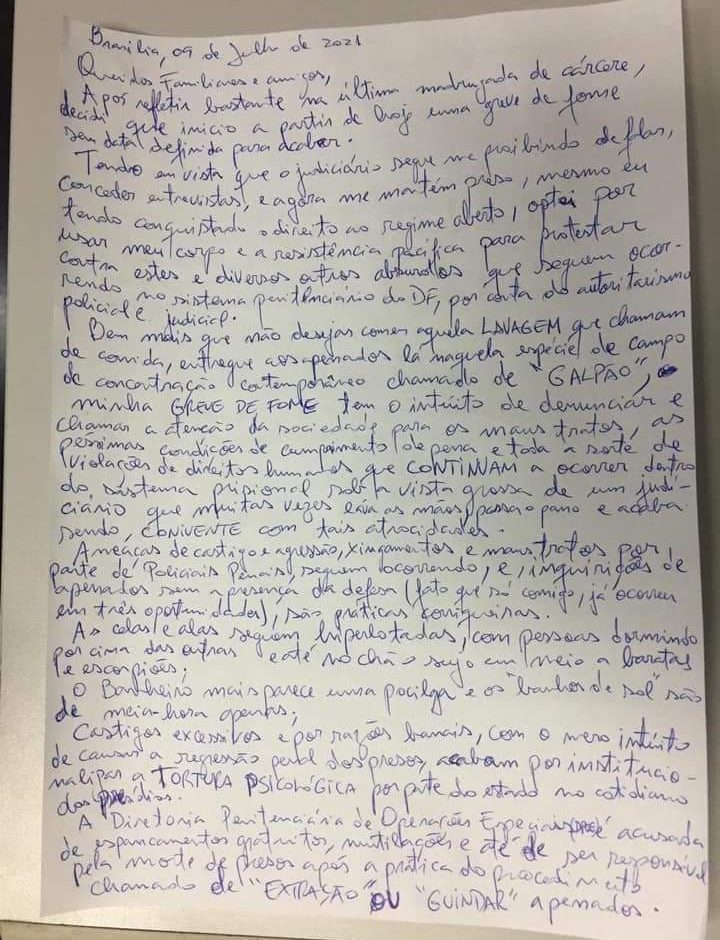 Brasília, 09 de Julho de 2021
Queridos Familiares e amigos,
Após refletir bastante na última madrugada de cárcere,
decidi que inicio a partir de hoje uma greve de fome
sem data definida para acabar.
Tendo em vista que o judiciário segue me proibindo de falar,
conceder entrevistas, e agora me mantém preso, mesmo eu
tendo conquistado o direito ao regime aberto, optei por
usar meu corpo e a resistência pacífica para protestar
contra estes e diversos outros absurdos que seguem ocor-
rendo no sistema penitenciário do DF, por conta do autoritarismo
policial e judicial.
Bem mais que não desejar comer aquela LAVAGEM que chamam
de comida, entregue aos apenados lá naquela espécie de campo
de concentração contemporâneo chamado de "GALPÃO", a
minha GREVE DE FOME tem o intuito de denunciar e
chamar a atenção da sociedade para os maus tratos, as
péssimas condições de cumprimento de pena e toda a sorte de
violações de direitos humanos que CONTINUAM a ocorrer dentro
do sistema prisional sob a vista grossa de um judi-
ciário que muitas vezes lava as mãos, passa o pano e acaba
sendo, CONIVENTE com tais atrocidades.
Ameaças de castigo e agressão, xingamentos e maus tratos por
parte de Policiais Penais, seguem ocorrendo, e, inquirições de
apenados sem a presença da defesa (fato que só comigo, já ocorreu
em três oportunidades), são práticas corriqueiras.
As celas e alas seguem hiperlotadas, com pessoas dormindo
por cima das outras e até no chão sujo em meio a baratas
e escorpiões;
O Banheiro mais parece uma pocilga e os "banhos de sol" são
de meia-hora apenas;
Castigos excessivos e por razões banais, com o mero intuito
de causar a regressão penal dos presos, acabam por institucio-
nalizar a TORTURA PSICOLÓGICA por parte do estado no cotidiano
dos presídios.
A Diretoria Penitenciária de Operações Especiais é acusada
de espancamentos gratuitos, mutilações e até de ser responsável
pela morte de presos após a prática do procedimento
chamado de "EXTRAÇÃO" OU "GUINDAR" apenados.